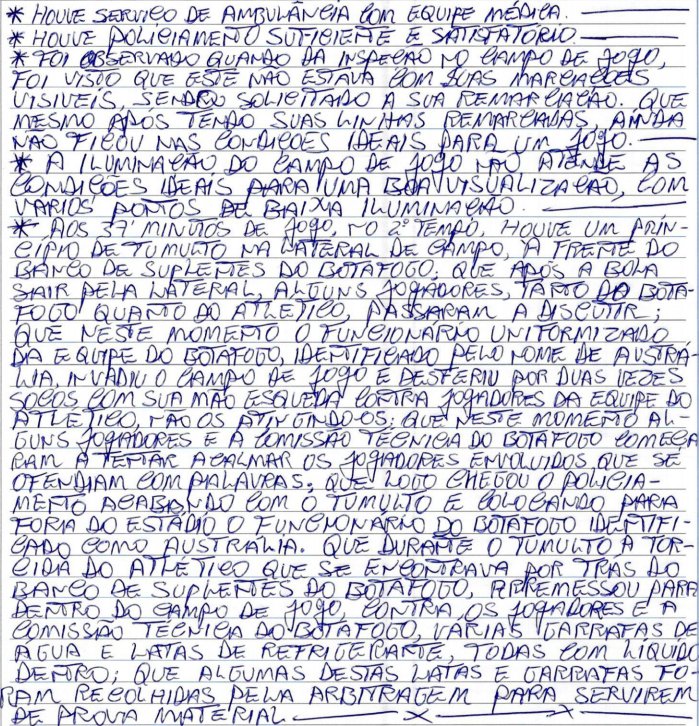 * HOUVE SERVIÇO DE AMBULÂNCIA COM EQUIPE MÉDICA.
* HOUVE POLICIAMENTO SUFICIENTE E SATISFATÓRIO
* FOI OBSERVADO QUANDO DA INSPEÇÃO NO CAMPO DE JOGO,
FOI VISTO QUE ESTE NÃO ESTAVA COM SUAS MARCAÇÕES
VISIVEIS, SENDO SOLICITADO A SUA REMARCAÇÃO. QUE
MESMO APÓS TENDO SUAS LINHAS REMARCADAS, AINDA
NÃO FICOU NAS CONDIÇÕES IDEAIS PARA UM JOGO.
* A ILUMINAÇÃO DO CAMPO DE JOGO NÃO ATENDE AS
CONDIÇÕES IDEAIS PARA UMA BOA VISUALIZAÇÃO, COM
VÁRIOS PONTOS DE BAIXA ILUMINAÇÃO.
* AOS 37' MINUTOS DE JOGO, NO 2º TEMPO, HOUVE UM PRIN-
CÍPIO DE TUMULTO NA LATERAL DE CAMPO, A FRENTE DO
BANCO DE SUPLENTES DO BOTAFOGO. QUE APÓS A BOLA
SAIR PELA LATERAL, ALGUNS JOGADORES, TANTO DO BOTA-
FOGO QUANTO DO ATLÉTICO, PASSARAM A DISCUTIR;
QUE NESTE MOMENTO O FUNCIONÁRIO UNIFORMIZADO
DA EQUIPE DO BOTAFOGO, IDENTIFICADO PELO NOME DE AUSTRÁ-
LIA, INVADIU O CAMPO DE JOGO E DESFERIU POR DUAS VEZES
SOCOS COM SUA MÃO ESQUEDA CONTRA JOGADORES DA EQUIPE DO
ATLÉTICO, NÃO OS ATINGINDO-OS; QUE NESTE MOMENTO AL-
GUNS JOGADORES E A COMISSÃO TÉCNICA DO BOTAFOGO COMEÇA-
RAM A TENTAR ACALMAR OS JOGADORES ENVOLVIDOS QUE SE
OFENDIAM COM PALAVRAS; QUE LOGO CHEGOU O POLICIA-
MENTO ACABANDO COM O TUMULTO E COLOCANDO PARA
FORA DO ESTÁDIO O FUNCIONÁRIO DO BOTAFOGO IDENTIFI-
CADO COMO AUSTRÁLIA. QUE DURANTE O TUMULTO A TOR-
CIDA DO ATLÉTICO QUE SE ENCONTRAVA POR TRÁS DO
BANCO DE SUPLENTES DO BOTAFOGO, ARREMESSOU PARA
DENTRO DO CAMPO DE JOGO, CONTRA OS JOGADORES E A
COMISSÃO TÉCNICA DO BOTAFOGO, VÁRIAS GARRAFAS DE
ÁGUA E LATAS DE REFRIGERANTE, TODAS COM LÍQUIDO
DENTRO; QUE ALGUMAS DESTAS LATAS E GARRAFAS FO-
RAM RECOLHIDAS PELA ARBITRAGEM PARA SERVIREM
DE PROVA MATERIAL